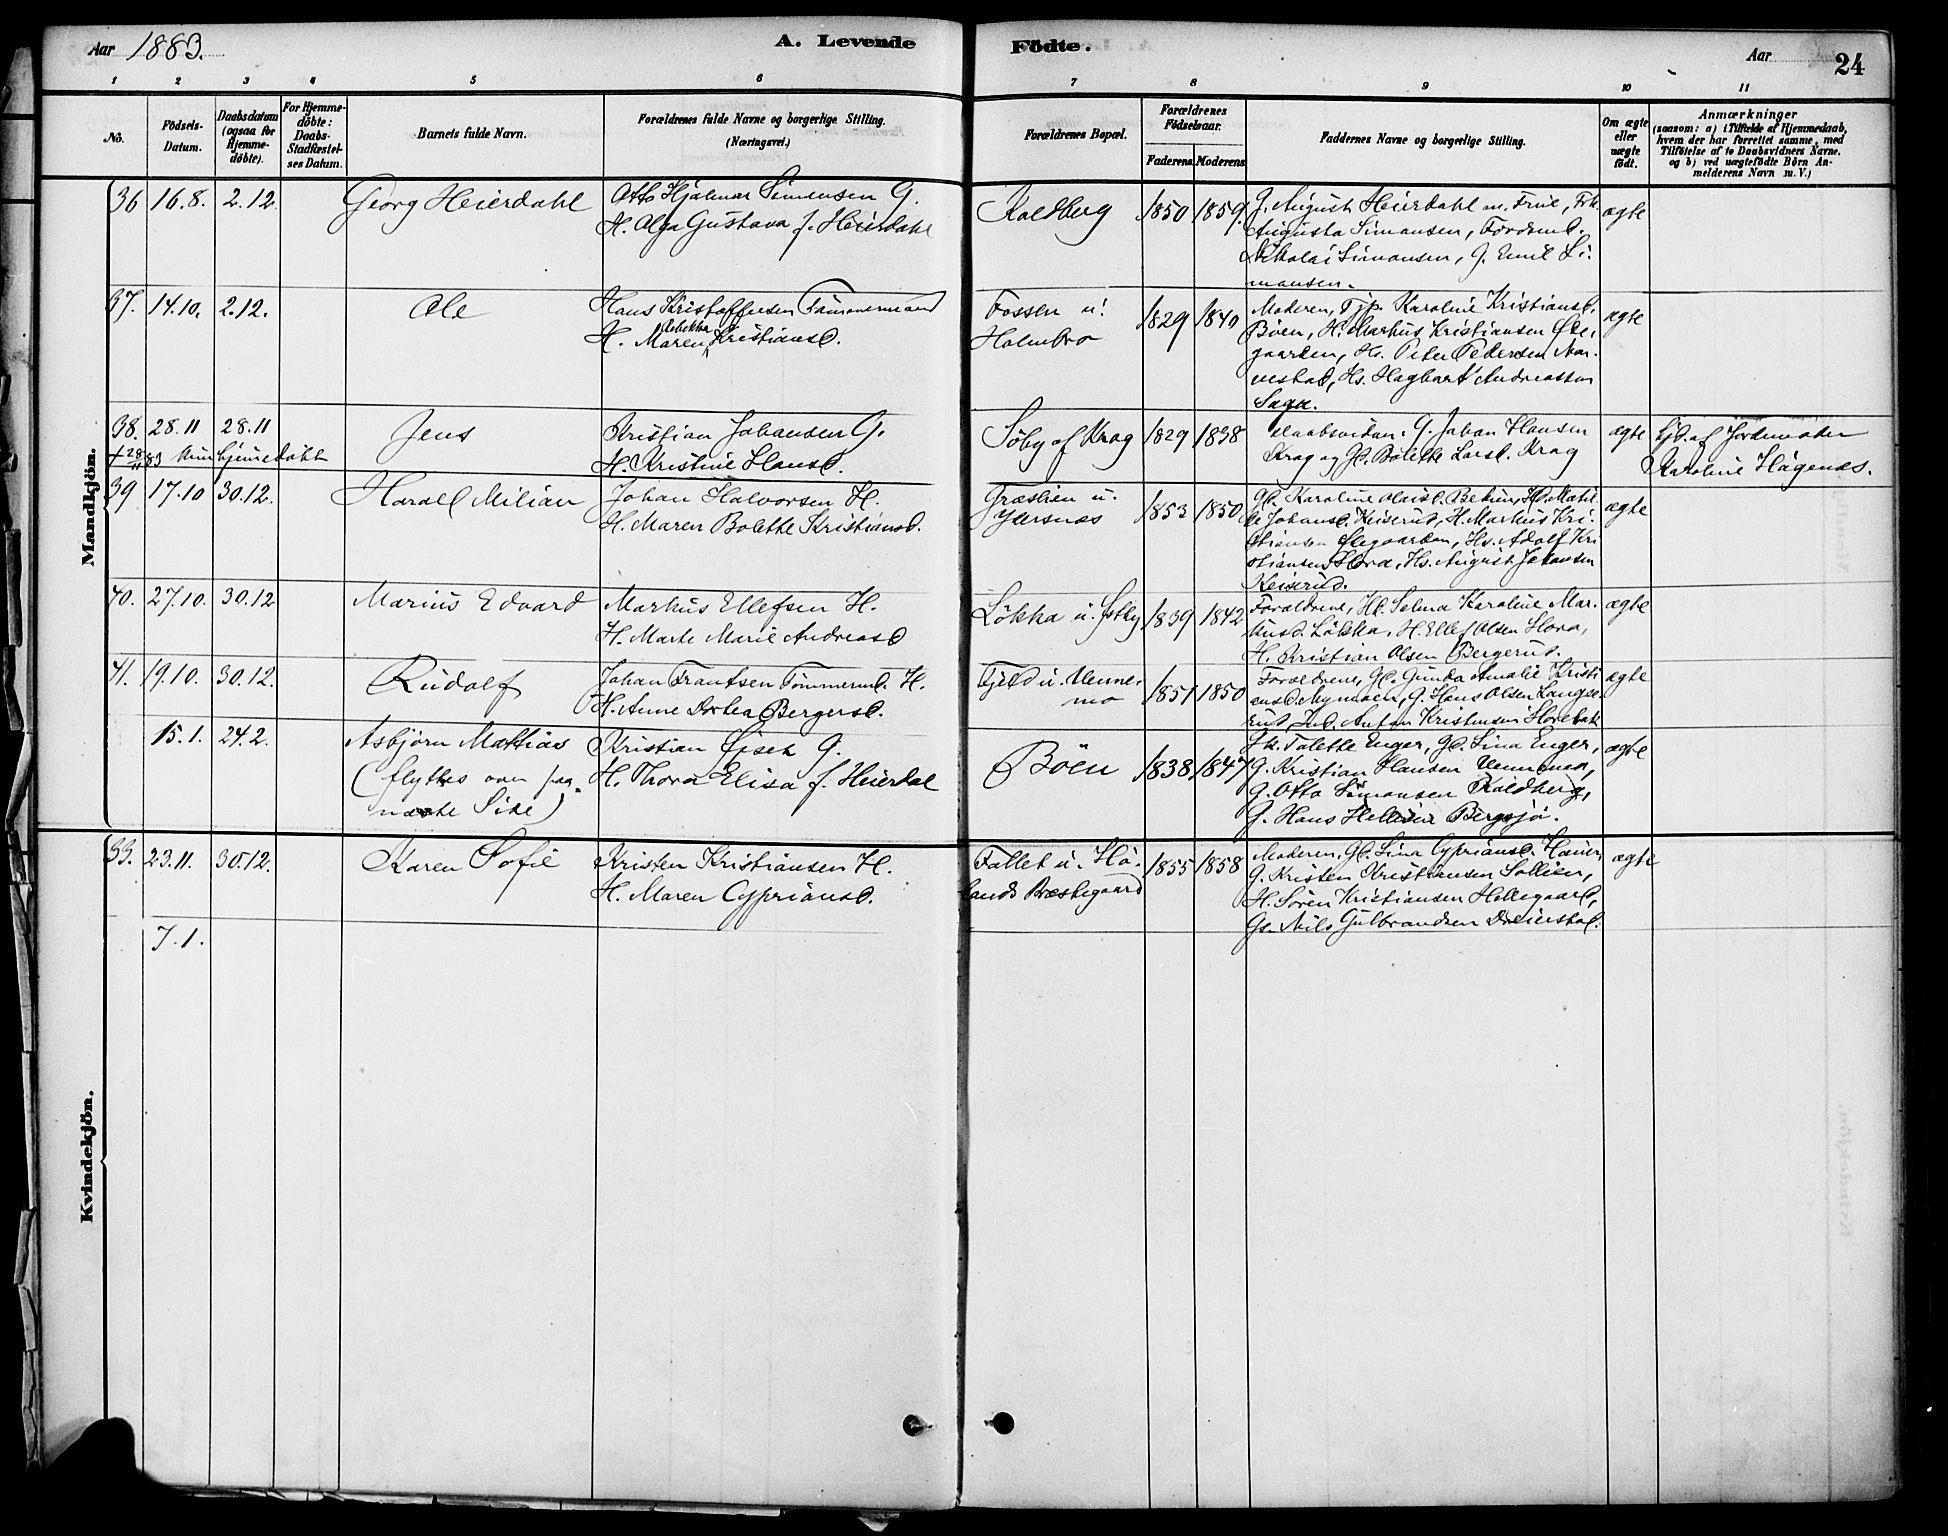 Aar 1883.
A. Levende Födte.
Aar
24
1 2 3 4 5 6 7 8 9 10 11
No.
Födsels-Datum.
Daabsdatum (ogsaa for Hjemme-döbte).
For Hjemme-döbte: Daabs-Stadfæstel-ses Datum.
Barnets fulde Navn.
Forældrenes fulde Navne og borgerlige Stilling.
(Næringsvei.)
Forældrenes Bopæl.
Forældrenes Födselsaar.
Faderens. Moderens.
Faddernes Navne og borgerlige Stilling.
Om ægte eller uægte födt.
Anmærkninger
(saasom: a) i Tilfælde af Hjemmedaab,
hvem der har forrettet samme, med
Tilföielse af to Daabsvidners Navne.
og b) ved uægtefödte Börn An-
melderens Navn m. V.)
Mandkjön.
36 16.8. 2.12. Georg Heierdahl
Otto Hjalmar Simensen G.
H. Olga Gustava f. Heierdahl
Koldberg 1850 1859.
J. August Heierdahl m. Frue, Frk.
Augusta Simonsen, Fordrmd.
Nikolai Simonsen, G. Emil Si-
monsen.
ægte
37. 14.10. 2.12. Ole
Hans Kristoffersen Tömmermand
H. Maren Rebekka Kristiansd.
Fossen u!
Holmbro
1829 1840
Moderen, Tjp. Karoline Kristiansd.
Böen, H. Markus Kristiansen Öde-
gaarden, Hs. Peter Pedersen Nar-
vestad, Hs. Hagbart Andreassen
Sagen.
ægte
38. 28.11 28.11 Jens
+ 28/11 83 kun hjemmedöbt
Kristian Johansen G.
H. Kristine Hansd.
Söby af Krog 1829 1838
Daabsvidn. G. Johan Hansen
Krog og Gl. Bolette Larsd. Krog
ægte
Hjd. af Jordemoder
Karoline Hågenæs.
39 17.10 30.12. Harald Milian
Johan Halvorsen H.
H. Maren Bolette Kristiansd.
Græslien u.
Ydersnæs
1853 1850
ægte
40. 27.10. 30.12 Marius Edvard
Markus Ellefsen H.
H. Marte Marie Andreasd
Lökka u. Østby 1839 1842
Forældrene, Hd. Selma Karoline Mar-
kusd. Lökka, H. Ellef Olsen Hora,
H. Kristian Olsen Bergerud.
ægte
41. 19.10. 30.12. Rudolf
Johan Frantsen Tömmermd. H.
H. Anne Dortea Bergersd.
Fjeld u. Venne-
mo
1851 1850
Forældrene, Gl. Gunda Amalie Kristi
ansd. Nymoen, G. Hans Olsen Langse-
rud, Anton Kristensen Horebæk
ægte
15.1. 24.2. Asbjörn Mathias
(flyttes over paa
næste Side)
Kristian Gisch G.
H. Thora Elisa f. Heierdal
Böen 1838 1847
Gk. Tolette Enger, Gl. Lina Enger,
G. Kristian Hansen Vennemo,
G. Otto Simonsen Koldberg,
G. Hans Hellesen Bergsjö.
ægte
Kvindekjön.
33. 23.11. 30.12. Karen Sofie
Kristen Kristiansen H.
H. Maren Cypriansd.
Fallet u. Hö-
lands Præstegaard
1855 1858
Moderen, Gl. Lina Cypriansd. Haner,
G. Kristen Kristiansen Sollien,
H. Sören Kristiansen Hellegaard,
Gs. Nils Gulbrandsen Dreierstad.
ægte
7.1.